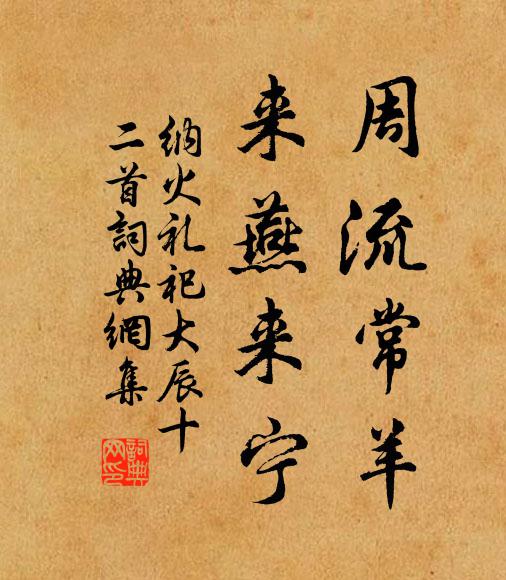 周流常羊
来燕来宁
纳火礼祀大辰十
二首詞典網集
詞典
网印